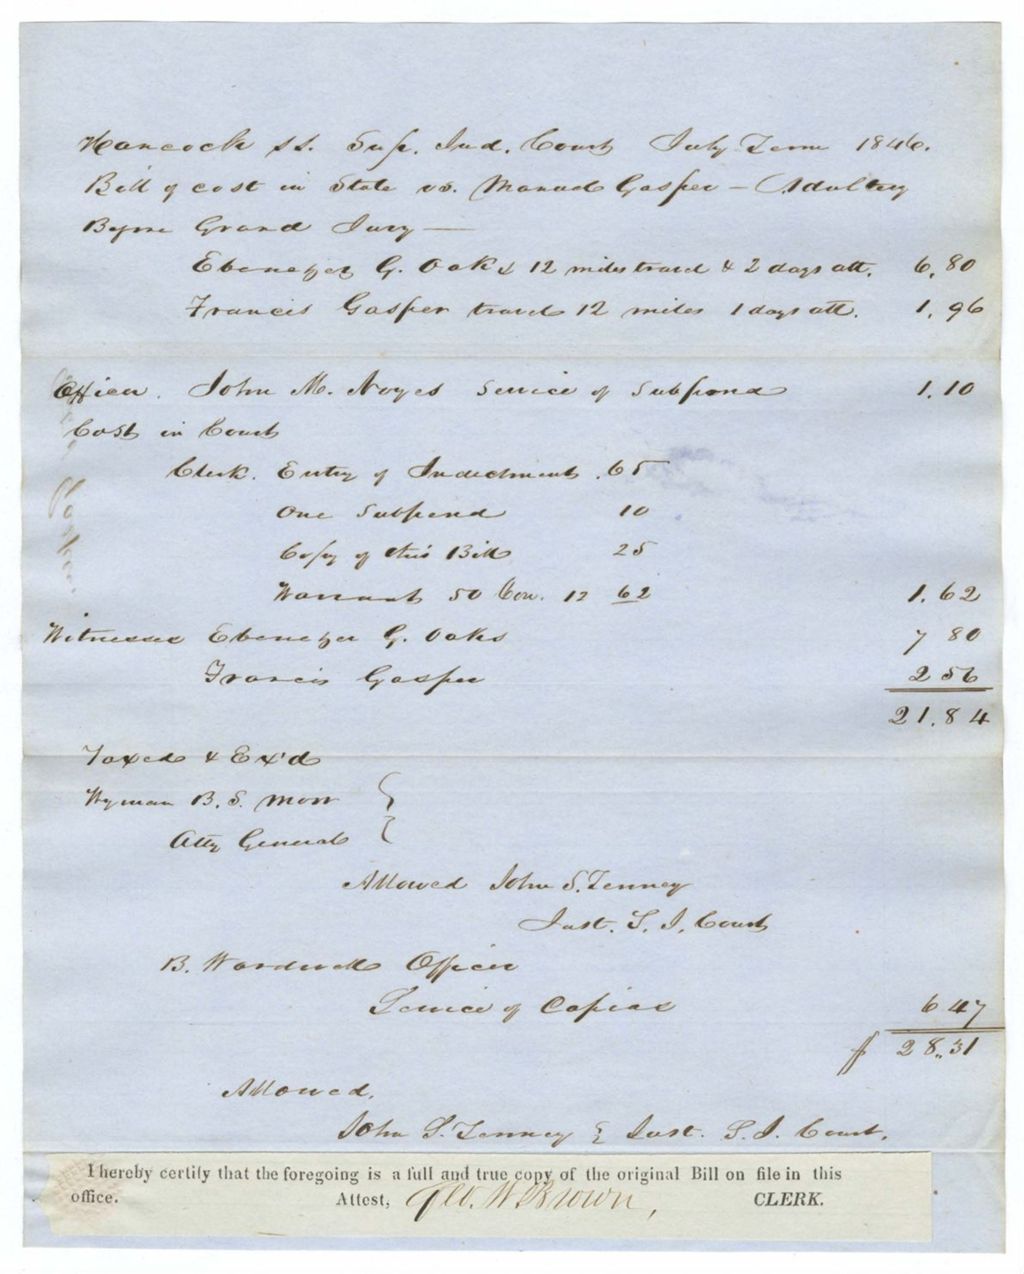 Hancock ss. Sup. Jud. Court July Term 1846.
Bill of cost in State vs. Manuel Gasper – Adultery
Before Grand Jury —
Ebenezer G. Oaks 12 miles travel & 2 days att. 6,80
Francis Gasper travel 12 miles 1 days att. 1.96
Officer. John M. Noyes Service of Subpena 1.10
Cost in Court
Clerk. Entry of Indictment .65
One Subpena 10
Copy of this Bill 25
Warrant 50 Con. 12 62 1.62
Witnesses Ebenezer G. Oaks 7 80
Francis Gasper 2 56
21.84
Taxed & Ex'd
Wyman B. S. Moor }
Atty General }
Allowed John S. Tenney
Just. S. J. Court
B. Officer
Service of Capias 6 47
$ 28.31
Allowed.
John S. Tenney } Just. S. J. Court.
I hereby certify that the foregoing is a full and true copy of the original Bill on file in this
office. Attest, Geo. W. Brown, CLERK.